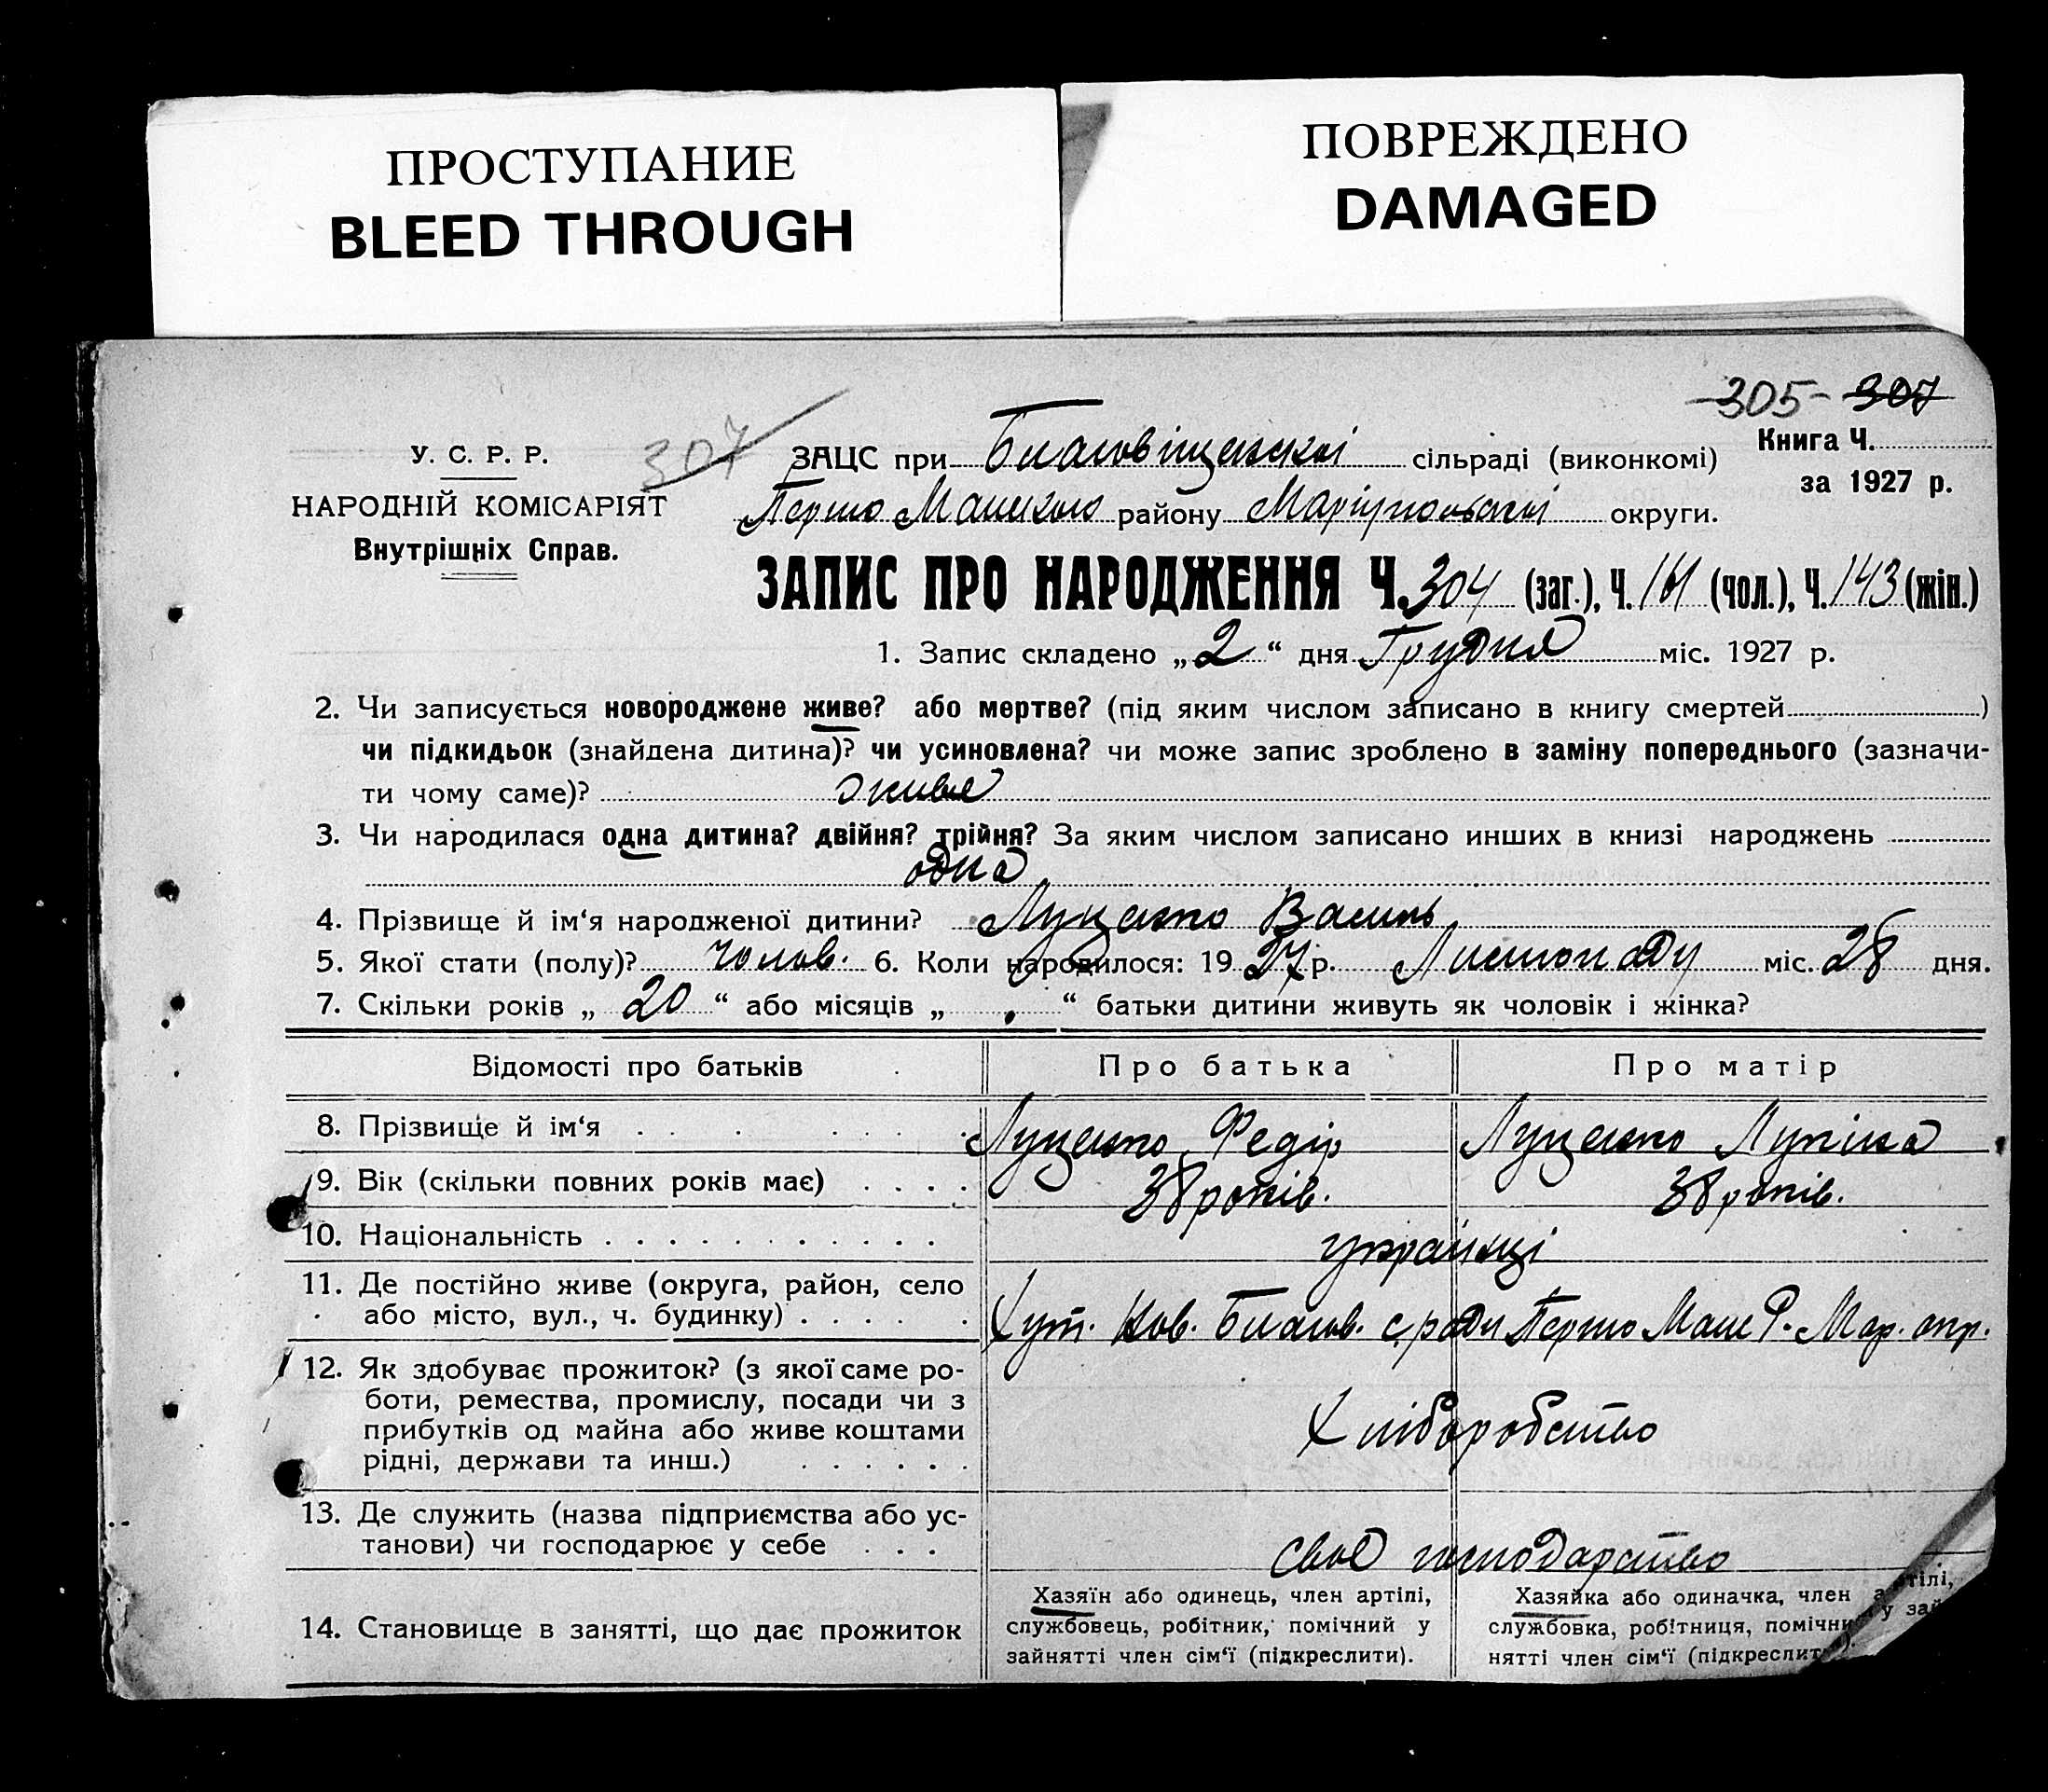 ПРОСТУПАНИЕ
BLEED THROUGH
ПОВРЕЖДЕНО
DAMAGED
305 307
307
У. С. Р. Р.
НАРОДНІЙ КОМІСАРІЯТ
Внутрішніх Справ.
ЗАЦС при Благовіщенскої сільраді (виконкомі)
Книга Ч.
за 1927 р.
району Маріупольскої округи.
ЗАПИС ПРО НАРОДЖЕННЯ Ч. 304 (заг.), Ч. 161 (чол.), Ч. 143 (жін.)
1. Запис складено „ 2 “ дня Грудня міс. 1927 р.
2. Чи записується новороджене живе? або мертве? (під яким числом записано в книгу смертей )
чи підкидьок (знайдена дитина)? чи усиновлена? чи може запис зроблено в заміну попереднього (зазначи-
ти чому саме)? живе
3. Чи народилася одна дитина? двійня? трійня? За яким числом записано инших в книзі народжень
одна
4. Прізвище й ім‘я народженої дитини? Луценко Василь
5. Якої стати (полу)? чолов. 6. Коли народилося: 1927 р. Листопаду міс. 28 дня.
7. Скільки років „ 20 “ або місяців „ “ батьки дитини живуть як чоловік і жінка?
Відомості про батьків Про батька Про матір
8. Прізвище й ім‘я Луценко Федір Луценко
9. Вік (скільки повних років має) 38 років. 38 років.
10. Національність українці
11. Де постійно живе (округа, район, село
або місто, вул., ч. будинку) Хут. с/ради Мар. окр.
12. Як здобуває прожиток? (з якої саме ро-
боти, ремества, промислу, посади чи з
прибутків од майна або живе коштами
рідні, держави та инш.)
Хліборобство
13. Де служить (назва підприємства або ус-
танови) чи господарює у себе
своє господарство
14. Становище в занятті, що дає прожиток
Хазяїн або одинець, член артілі,
службовець, робітник, помічний у
зайнятті член сім‘ї (підкреслити).
Хазяйка або одиначка, член
службовка, робітниця,
нятті член сім‘ї